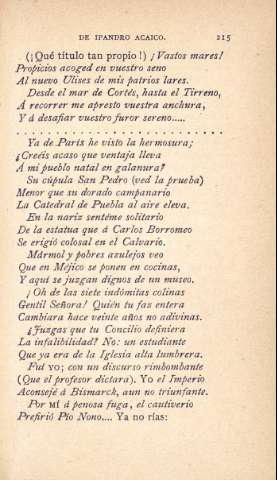 DE IPANDRO ACAICO. 215
(¡Qué título tan propio!) ¡Vastos mares!
Propicios acoged en vuestro seno
Al nuevo Ulises de mis patrios lares.
Desde el mar de Cortés, hasta el Tirreno,
Á recorrer me apresto vuestra anchura,
Y á desafiar vuestro furor sereno.....
. . . . . . . . . . . . . . . . . . . . . . . .
Ya de París he visto la hermosura;
¿Creéis acaso que ventaja lleva
Á mi pueblo natal en galanura?
Su cúpula San Pedro (ved la prueba)
Menor que su dorado campanario
La Catedral de Puebla al aire eleva.
En la nariz sentéme solitario
De la estatua que á Carlos Borromeo
Se erigió colosal en el Calvario.
Mármol y pobres azulejos veo
Que en Méjico se ponen en cocinas,
Y aquí se juzgan dignos de un museo.
¡Oh de las siete indómitas colinas
Gentil Señora! Quién tu faz entera
Cambiara hace veinte años no adivinas.
¿Juzgas que tu Concilio definiera
La infalibilidad? No: un estudiante
Que ya era de la Iglesia alta lumbrera.
Fuí YO; con un discurso rimbombante
(Que el profesor dictara). Yo el Imperio
Aconsejé á Bismarck, aun no triunfante.
Por MÍ á penosa fuga, el cautiverio
Prefirió Pío Nono.... Ya no rías: